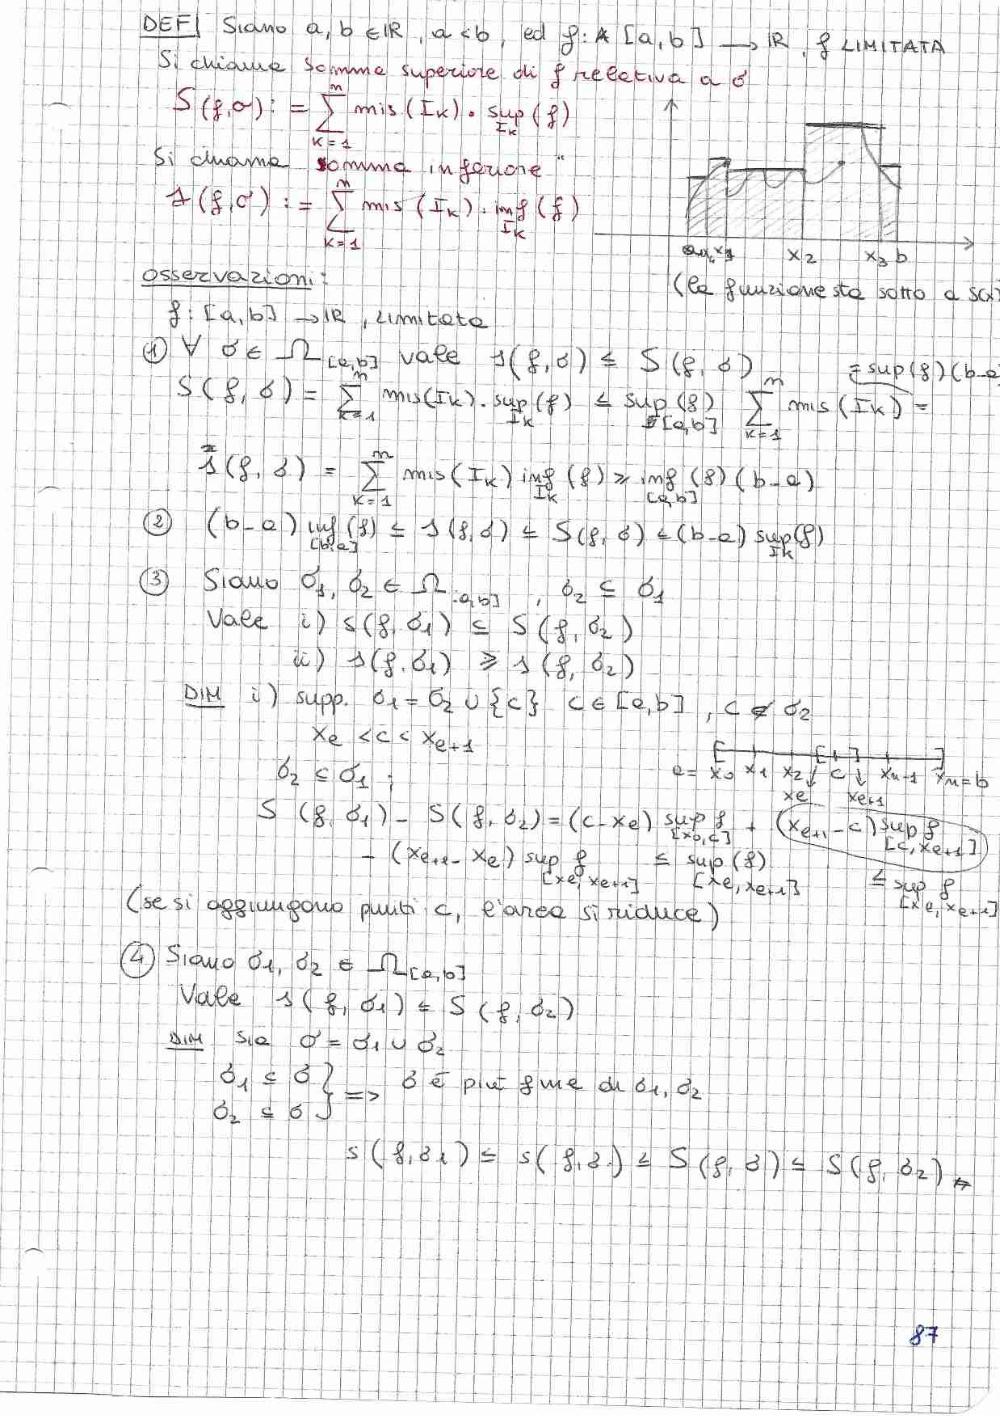 DEF| Siano a, b ∈ ℝ, a < b, ed f: A [a, b] → ℝ, f LIMITATA
Si chiama somma superiore di f relativa a σ
S(f,σ) := ∑_{k=1}^{n} mis(I_k) · sup_{I_k}(f)
Si chiama somma inferiore "
s(f,σ) := ∑_{k=1}^{n} mis(I_k) · inf_{I_k}(f)
x_2 x_3 b
(la funzione sta sotto a
osservazioni:
f: [a,b] → ℝ, Limitata
① ∀ σ ∈ Ω_{[a,b]} vale s(f,σ) ≤ S(f,σ)
= sup(f)(b-a
S(f,σ) = ∑_{k=1}^{n} mis(I_k) · sup_{I_k}(f) ≤ sup_{[a,b]}(f) ∑_{k=1}^{n} mis(I_k) =
s(f,σ) = ∑_{k=1}^{n} mis(I_k) inf_{I_k}(f) ≥ inf_{[a,b]}(f)(b-a)
② (b-a) inf_{[b,a]}(f) ≤ s(f,σ) ≤ S(f,σ) ≤ (b-a) sup_{I_k}(f)
③ Siano σ_1, σ_2 ∈ Ω_{[a,b]}, σ_2 ⊆ σ_1
Vale i) S(f,σ_1) ≤ S(f,σ_2)
ii) s(f,σ_1) ≥ s(f,σ_2)
DIM i) supp. σ_1 = σ_2 ∪ {c} c ∈ [a,b], c ∉ σ_2
x_e < c < x_{e+1}
a = x_0 x_1 x_2 c x_{n-1} x_n = b
x_e x_{e+1}
σ_2 ⊆ σ_1 ;
S(f,σ_1) - S(f,σ_2) = (c-x_e) sup_{[x_0,c]} f + (x_{e+1}-c) sup_{[c,x_{e+1}]} f
- (x_{e+1}-x_e) sup_{[x_e,x_{e+1}]} f ≤ sup_{[x_e,x_{e+1}]}(f) ≤ sup_{[x_e,x_{e+1}]} f
(se si aggiungono punti c, l'area si riduce)
④ Siano σ_1, σ_2 ∈ Ω_{[a,b]}
Vale s(f,σ_1) ≤ S(f,σ_2)
DIM Sia σ = σ_1 ∪ σ_2
σ_1 ⊆ σ
σ_2 ⊆ σ } => σ è più fine di σ_1, σ_2
s(f,σ_1) ≤ s(f,σ) ≤ S(f,σ) ≤ S(f,σ_2)
87